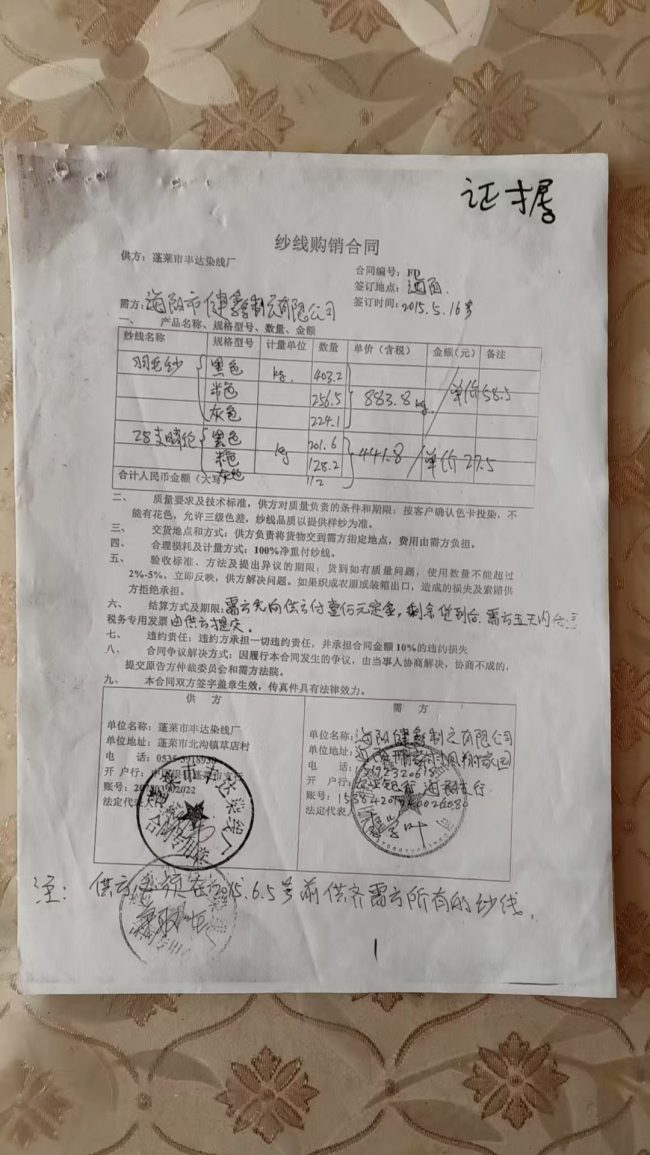 证据
纱线购销合同
供方：蓬莱市丰达染线厂
合同编号：FD
签订地点：海阳
需方：海阳市健鑫制衣有限公司
签订时间：2015.5.16号
一、 产品名称、规格型号、数量、金额
纱线名称 规格型号 计量单位 数量 单价（含税） 金额（元） 备注
羽毛纱 黑色 kg. 403.2
米色 256.5 883.8kg 单价58.5
灰色 224.1
28支晴纶 黑色 kg 201.6
米色 128.2 441.8 单价27.5
灰色 112
合计人民币金额（大写
二、 质量要求及技术标准，供方对质量负责的条件和期限：按客户确认色卡投染，不
能有花色，允许三级色差，纱线品质以提供样纱为准。
三、 交货地点和方式：供方负责将货物交到需方指定地点，费用由需方负担。
四、 合理损耗及计量方式：100%净重付纱线。
五、 验收标准、方法及提出异议的期限：货到如有质量问题，使用数量不能超过
2%-5%，立即反映，供方解决问题。如果织成衣服或装箱出口，造成的损失及索赔供
方拒绝承担。
六、 结算方式及期限：需方先向供方付壹仟元定金，剩余货到后，需方五天内
税务专用发票由供方提供。
七、 违约责任：违约方承担一切违约责任，并承担合同金额10%的违约损失
八、 合同争议解决方式：因履行本合同发生的争议，由当事人协商解决，协商不成的，
提交原告方仲裁委员会和需方法院。
九、 本合同双方签字盖章生效，传真件具有法律效力。
供 方 需 方
单位名称：蓬莱市丰达染线厂 单位名称：海阳健鑫制衣有限公司
单位地址：蓬莱市北沟镇草店村 单位地址：
电 话：0535- 电 话：
开 户 行： 开 户 行：
账号： 账号：
法定代表人 法定代表人
蓬莱市丰达染线厂
合同专用章
注：供方必须在2015.6.5号前供齐需方所有的纱线。
1